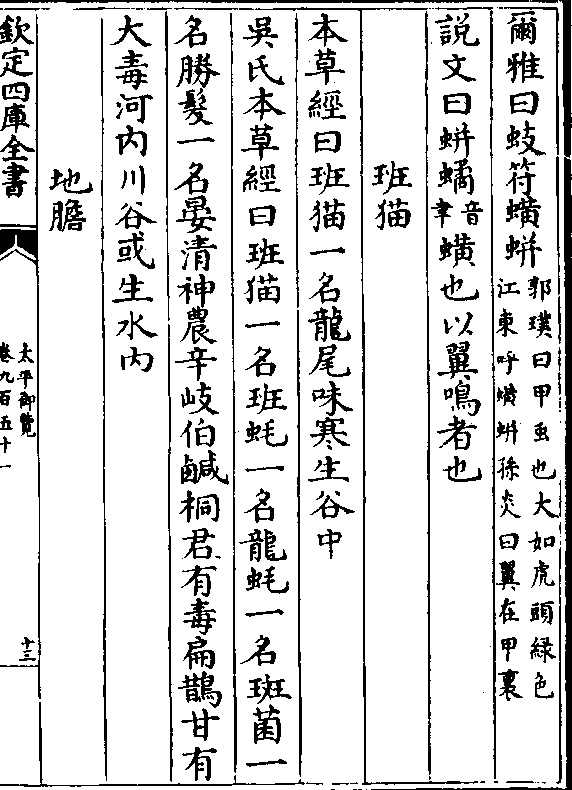 爾雅曰蛂符蟥蛢郭璞曰甲虫也大如虎頭緑色江東呼蟥蛢孫炎曰翼在甲裏
說文曰蛢蟠音聿蟥也以翼鳴者也
班猫
本草經曰班猫一名龍尾味寒生谷中
吳氏本草經曰班猫一名班蚝一名龍蚝一名斑菌一
名勝髮一名晏清神農辛岐伯鹹桐君有毒扁鵲甘有
大毒河内川谷或生水内
地膽
欽定四庫全書
太平御覽
卷九百五十一
十三